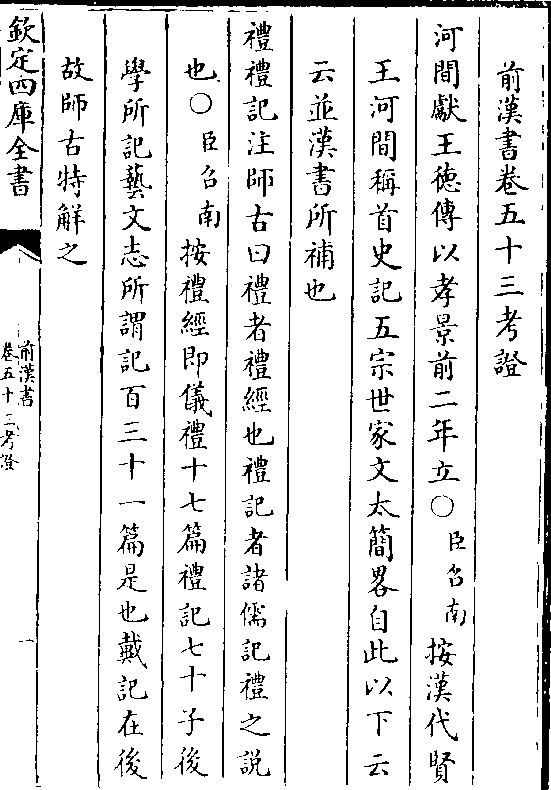 前漢書卷五十三考證
河間獻王徳傳以孝景前二年立○臣召南按漢代賢
王河間稱首史記五宗世家文太簡畧自此以下云
云並漢書所補也
禮禮記注師古曰禮者禮經也禮記者諸儒記禮之説
也○臣召南按禮經即儀禮十七篇禮記七十子後
學所記藝文志所謂記百三十一篇是也戴記在後
故師古特解之
欽定四庫全書
前漢書
卷五十三考證
一